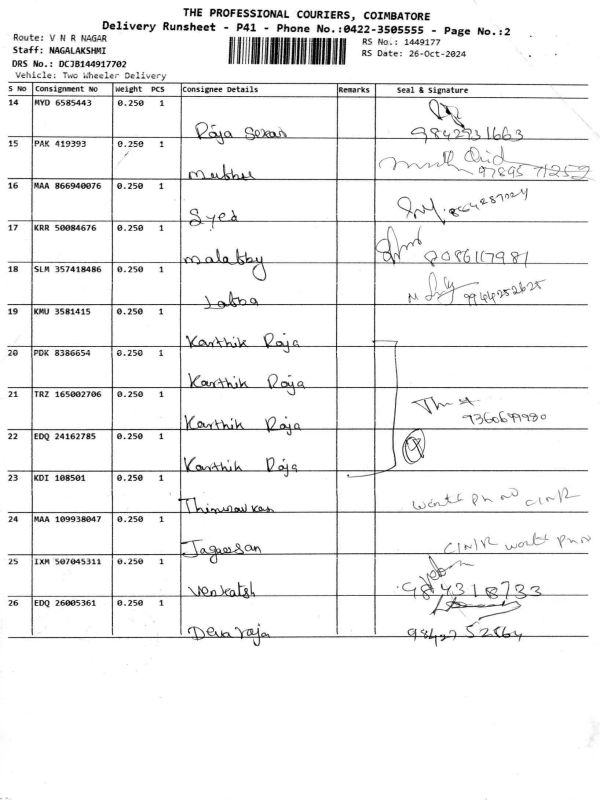 THE PROFESSIONAL COURIERS, COIMBATORE
Delivery Runsheet - P41 - Phone No.:0422-3505555 - Page No.:2
Route: V N R NAGAR
RS No.: 1449177
Staff: NAGALAKSHMI
RS Date: 26-Oct-2024
DRS No.: DCJB144917702
Vehicle: Two Wheeler Delivery
S No Consignment No Weight PCS Consignee Details Remarks Seal & Signature
14 MYD 6585443 0.250 1
Raja 9842931663
15 PAK 419393 0.250 1
97895 71252
16 MAA 866940076 0.250 1
Syed
17 KRR 50084676 0.250 1
8086117981
18 SLM 357418486 0.250 1
9944252625
19 KMU 3581415 0.250 1
Karthik Raja
20 PDK 8386654 0.250 1
Karthik Raja
21 TRZ 165002706 0.250 1
Karthik Raja
22 EDQ 24162785 0.250 1
Karthik Raja 4
23 KDI 108501 0.250 1
ph no
24 MAA 109938047 0.250 1
25 IXM 507045311 0.250 1
Venkatsh 984318733
26 EDQ 26005361 0.250 1
Deva raja